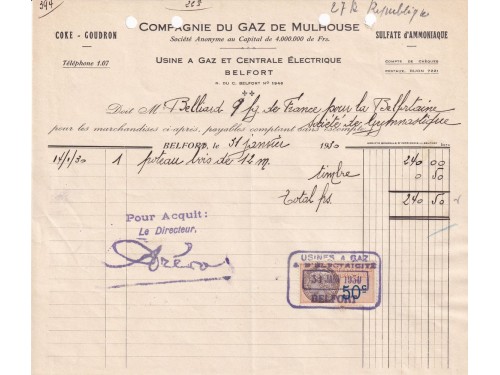 394
362
27 R République
COMPAGNIE DU GAZ DE MULHOUSE
COKE - GOUDRON
Société Anonyme au Capital de 4.000.000 de Frs.
SULFATE D'AMMONIAQUE
Téléphone 1.67
USINE A GAZ ET CENTRALE ÉLECTRIQUE
BELFORT
COMPTE DE CHÈQUES
POSTAUX, DIJON 7321
R. DU C. BELFORT Nº 1946
Doit M Belliard 9 fg de France pour la Belfortaine
société de Gymnastique
pour les marchandises ci après, payables comptant sans escompte.
BELFORT, le 31 janvier 1930
14/1/30 1 poteau bois de 12 m. 240 00
timbre 0 50
Total frs 240 50
Pour Acquit:
Le Directeur.
USINES A GAZ
& D'ELECTRICITE
1930
50c
BELFORT